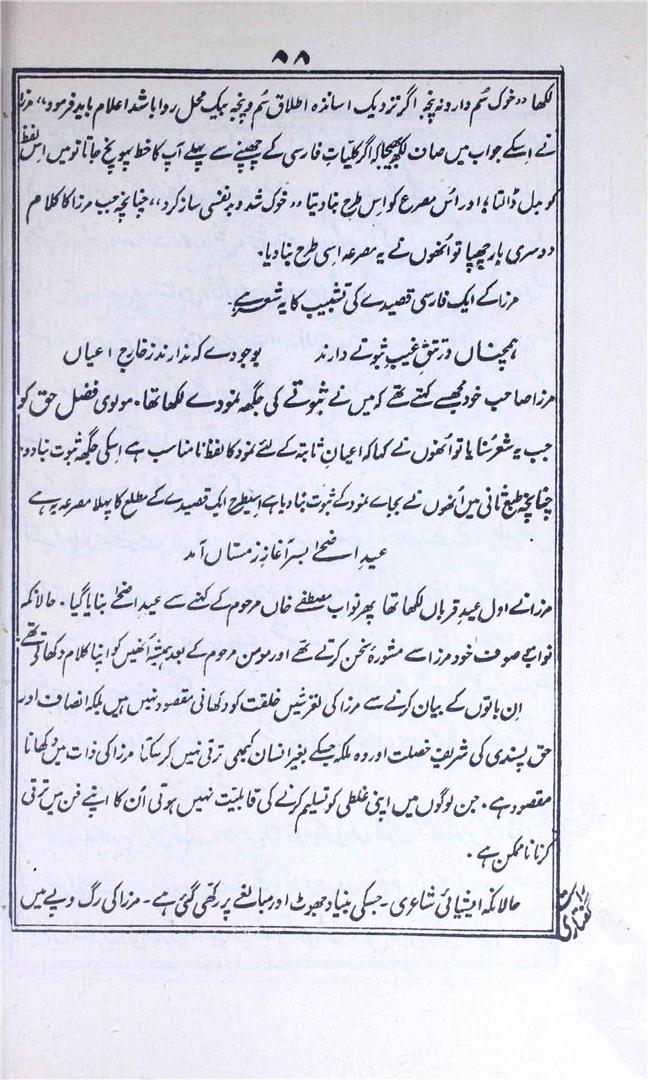 ۸۸
لکھا ‘‘خوک سُم دارد نہ پنجہ اگر نزدیک اساتذہ اطلاق سُم و پنجہ بیک محل روا باشد اعلام باید فرمود’’ مرزا
نے اسکے جواب میں صاف لکھ بھیجا کہ اگر کلیاتِ فارسی کے چھپنے سے پہلے آپ کا خط پہونچ جاتا تو میں اس لفظ
کو بدل ڈالتا؛ اور اس مصرع کو اس طرح بنا دیتا ‘‘خوک شد و بد نفسی ساز کرد’’ چنانچہ جب مرزا کا کلام
دوسری بار چھپا تو اُنھوں نے یہ مصرعہ اسی طرح بنا دیا۔
مرزا کے ایک فارسی قصیدے کی تشبیب کا یہ شعر ہے
ہمچناں در تتقِ غیب ثبوتے دارند بوجودے کہ ندارند ز خارج اعیاں
مرزا صاحب خود مجھسے کہتے تھے کہ میں نے ثبوتے کی جگھ نمودے لکھا تھا۔ مولوی فضل حق کو
جب یہ شعر سُنایا تو اُنھوں نے کہا کہ اعیانِ ثابتہ کے لئے نمود کا لفظ نامناسب ہے اسکی جگھ ثبوت بنا دو۔
چنانچہ طبع ثانی میں اُنھوں نے بجاے نمود کے ثبوت بنا دیا ہے اسیطرح ایک قصیدے کے مطلع کا پہلا مصرعہ یہ ہے
عیدِ اضحےٰ بسر آغازِ زمستاں آمد
مرزا نے اول عیدِ قرباں لکھا تھا پھر نواب مصطفےٰ خاں مرحوم کے کہنے سے عیدِ اضحےٰ بنایا گیا۔ حالانکہ
نواب موصوف خود مرزا سے مشورۂ سخن کرتے تھے اور مومن مرحوم کے بعد ہمیشہ اُنھیں کو اپنا کلام دکھاتے تھے
اِن باتوں کے بیان کرنے سے مرزا کی لغزشیں خلقت کو دکھانی مقصود نہیں ہیں بلکہ انصاف اور
حق پسندی کی شریف خصلت اور وہ ملکہ جسکے بغیر انسان کبھی ترقی نہیں کر سکتا مرزا کی ذات میں دکھانا
مقصود ہے۔ جن لوگوں میں اپنی غلطی کو تسلیم کرنے کی قابلیت نہیں ہوتی اُن کا اپنے فن میں ترقی
کرنا ناممکن ہے۔
حالانکہ ایشیائی شاعری۔ جسکی بنیاد جھوٹ اور مبالغے پر رکھی گئی ہے۔ مرزا کی رگ و پے میں
راست گفتاری